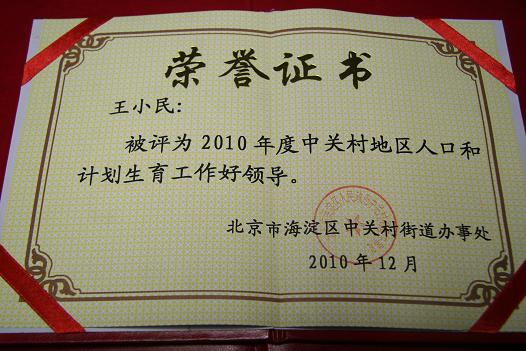 荣誉证书
王小民:
被评为2010年度中关村地区人口和
计划生育工作好领导。
北京市海淀区中关村街道办事处
2010年12月